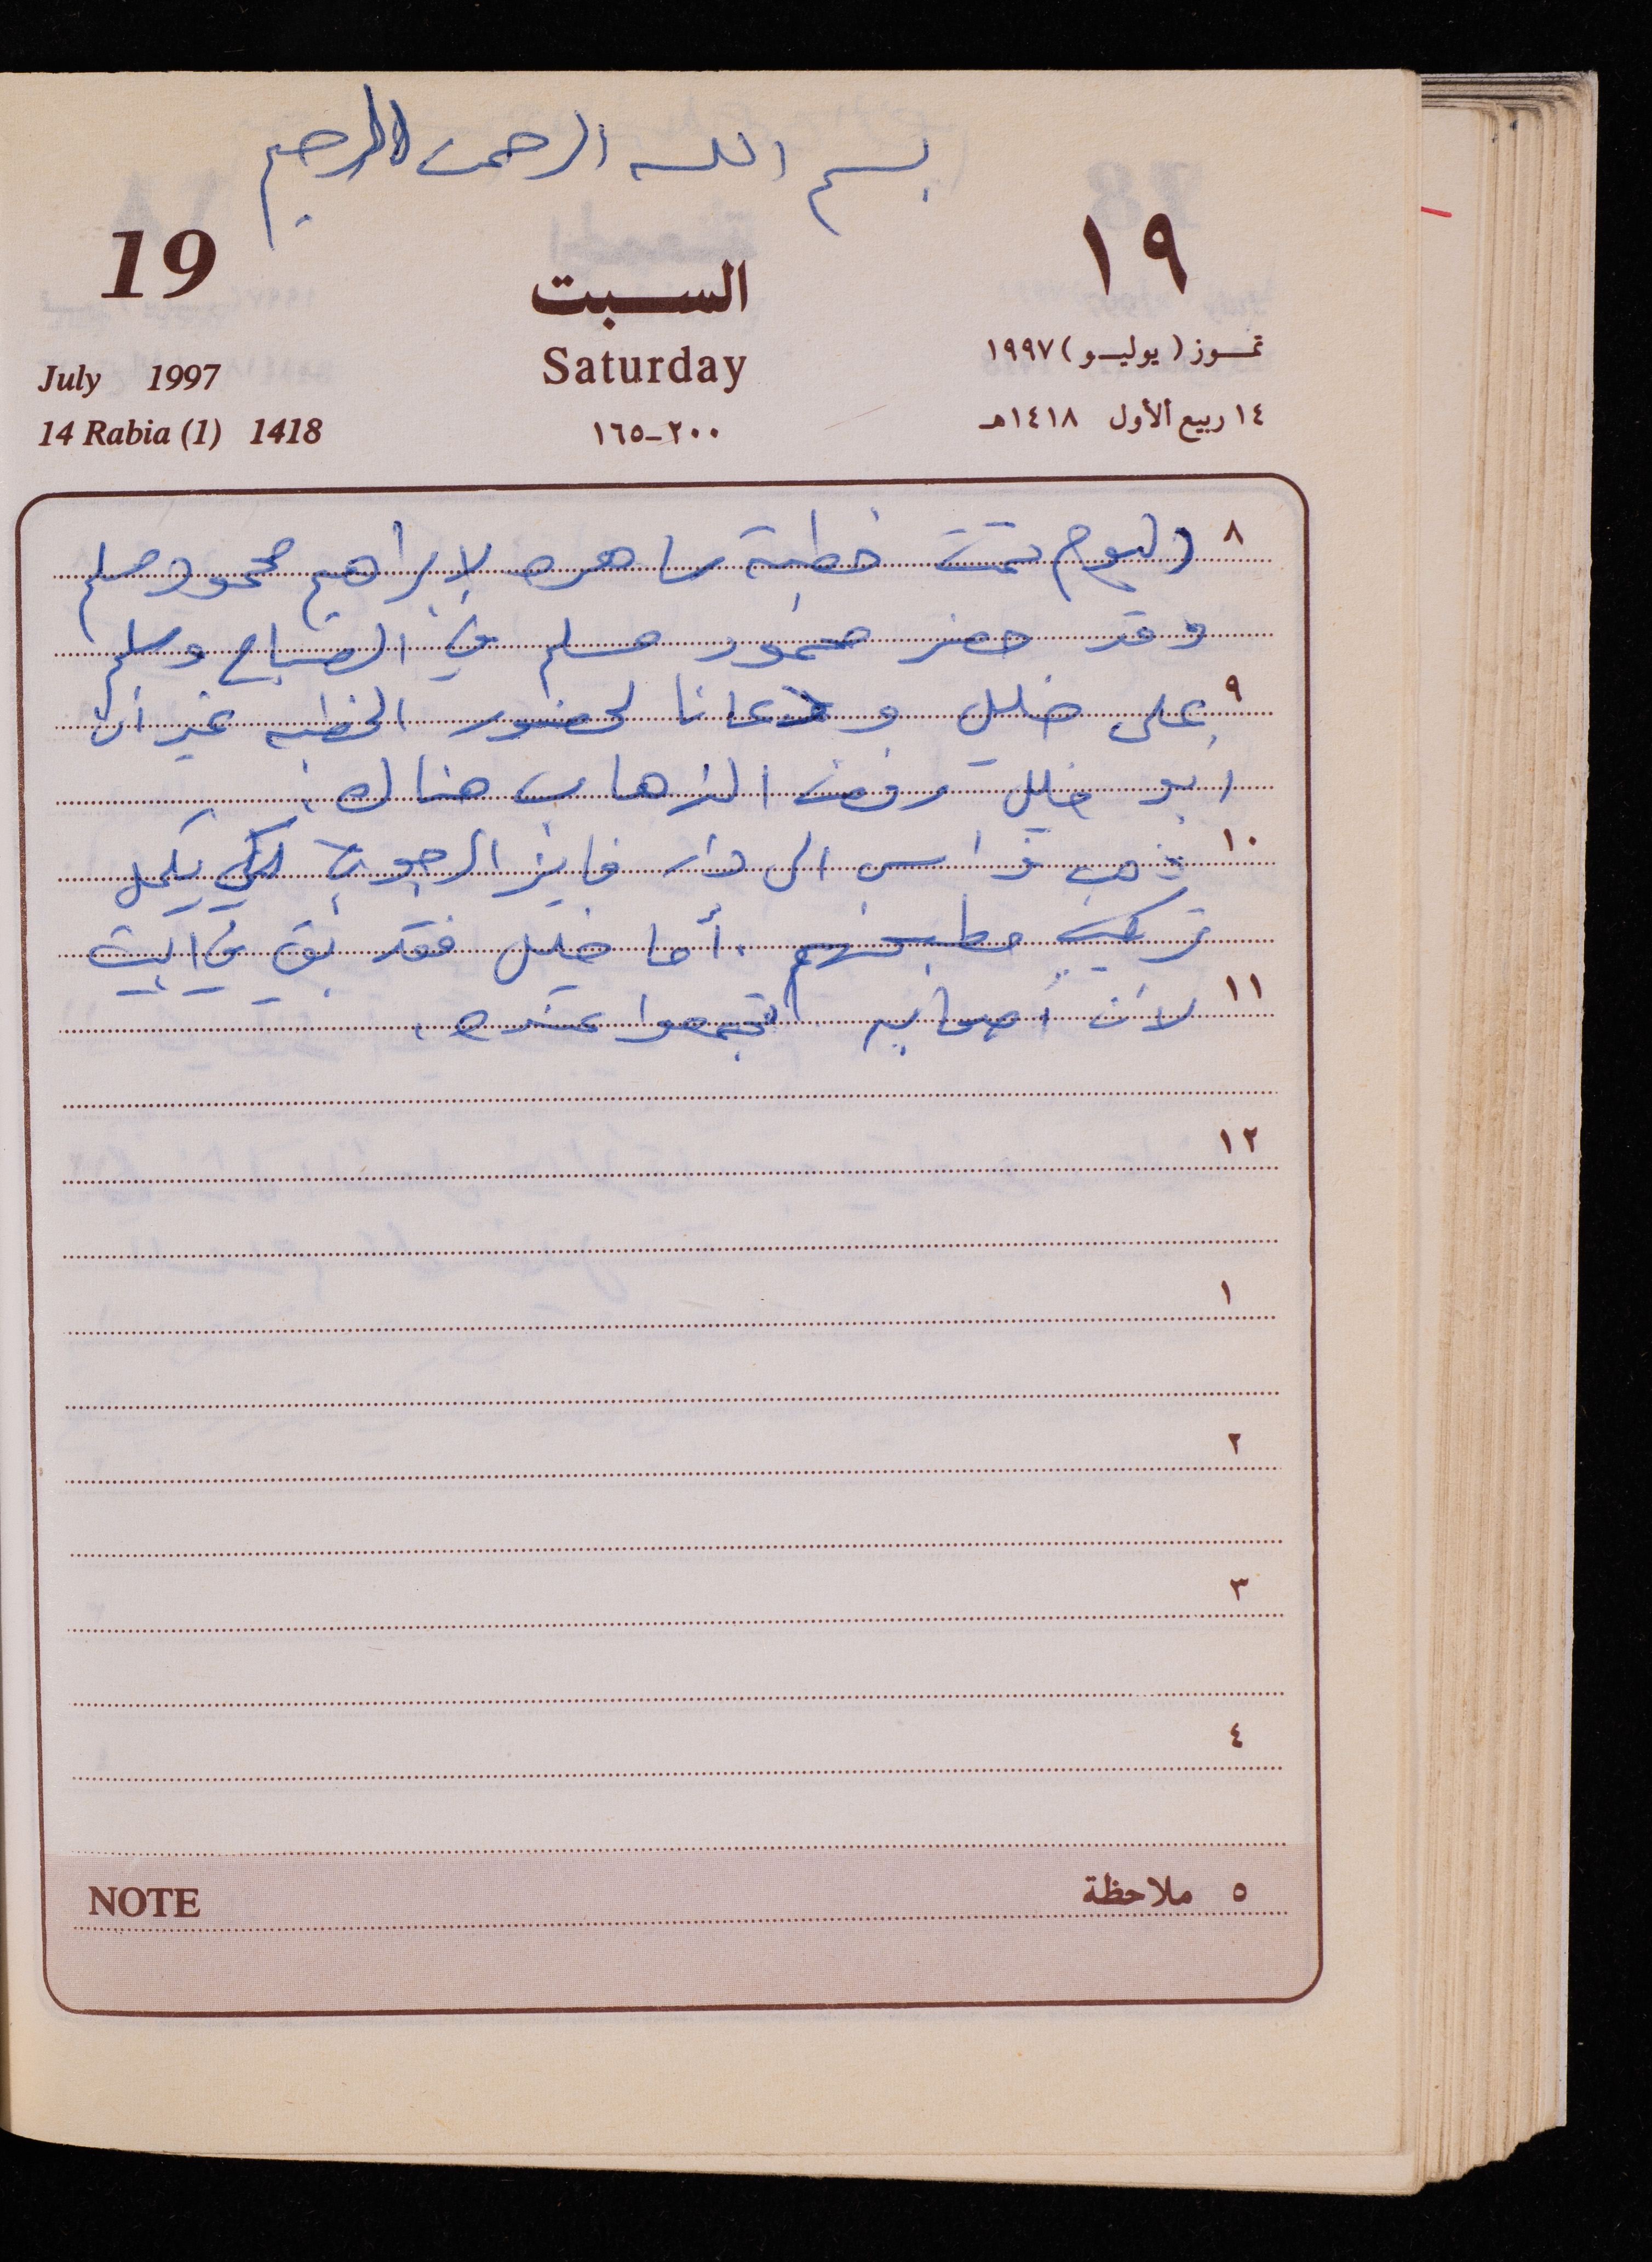 بسم الله الرحمن الرحيم
19 السبت ١٩
July 1997 Saturday تمـوز (يوليـو) ١٩٩٧
14 Rabia (1) 1418 ٢٠٠-١٦٥ ١٤ ربيع الأول ١٤١٨هـ
٨ اليوم تمت خطبة ساهره لإبراهيم محمود مسلم
وقد حضر محمود مسلم في الصباح وسلم
٩ على خليل ودعانا لحضور الخطبه غير أن
ابو خليل رفض الذهاب هناك.
١٠ ذهب فراس الى دار فايز الرجوب لكي يكمل
تركيب مطبخهم. أما خليل فقد بقي في البيت
١١ لأن أصحابه تجمعوا عنده.
١٢
١
٢
٣
٤
NOTE ٥ ملاحظة